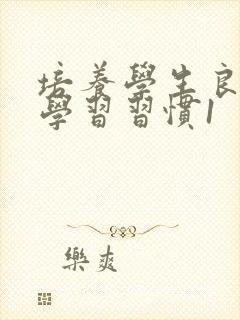 培養學生良
學習習慣1
樂爽